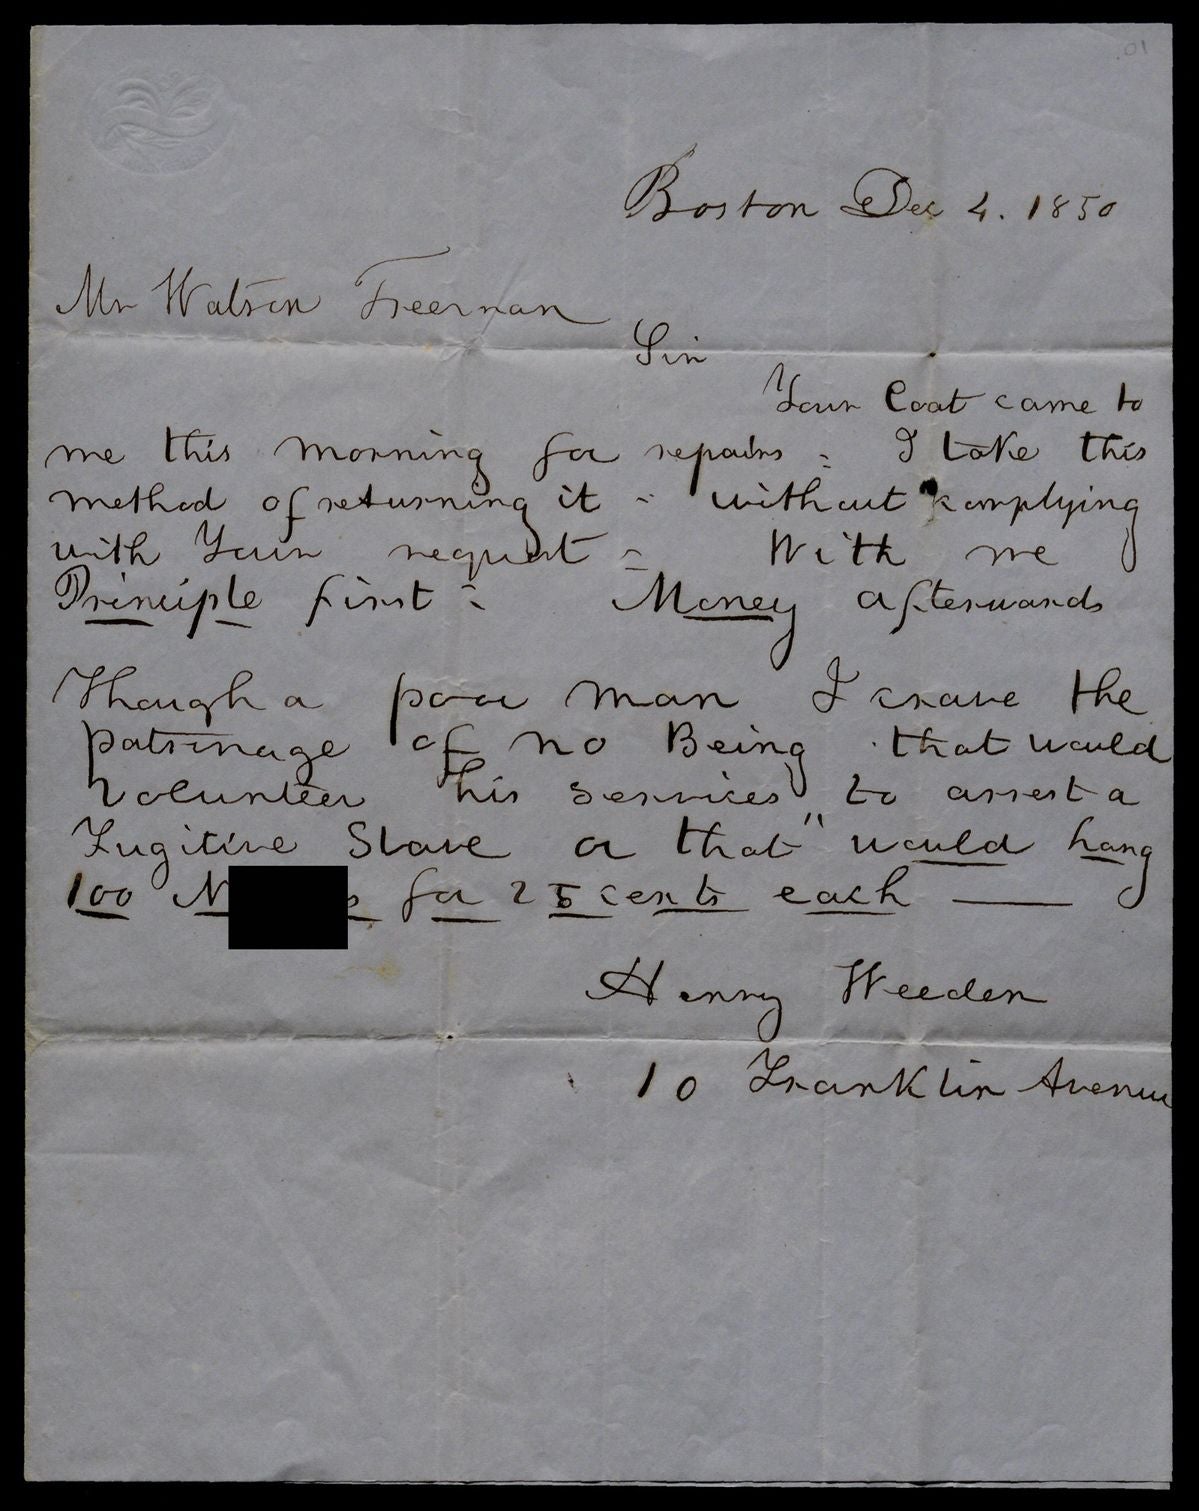 01
Boston Dec 4. 1850
Mr Watson Freeman
Sir
Your Coat came to
me this morning for repairs - I take this
method of returning it - without complying
with Your request - With me
Principle first - Money afterwards
Though a poor man I crave the
patronage of no Being that would
Volunteer his services to arrest a
Fugitive Slave or that " would hang
100 N s for 25 cents each —
Henry Weeden
10 Franklin Avenue